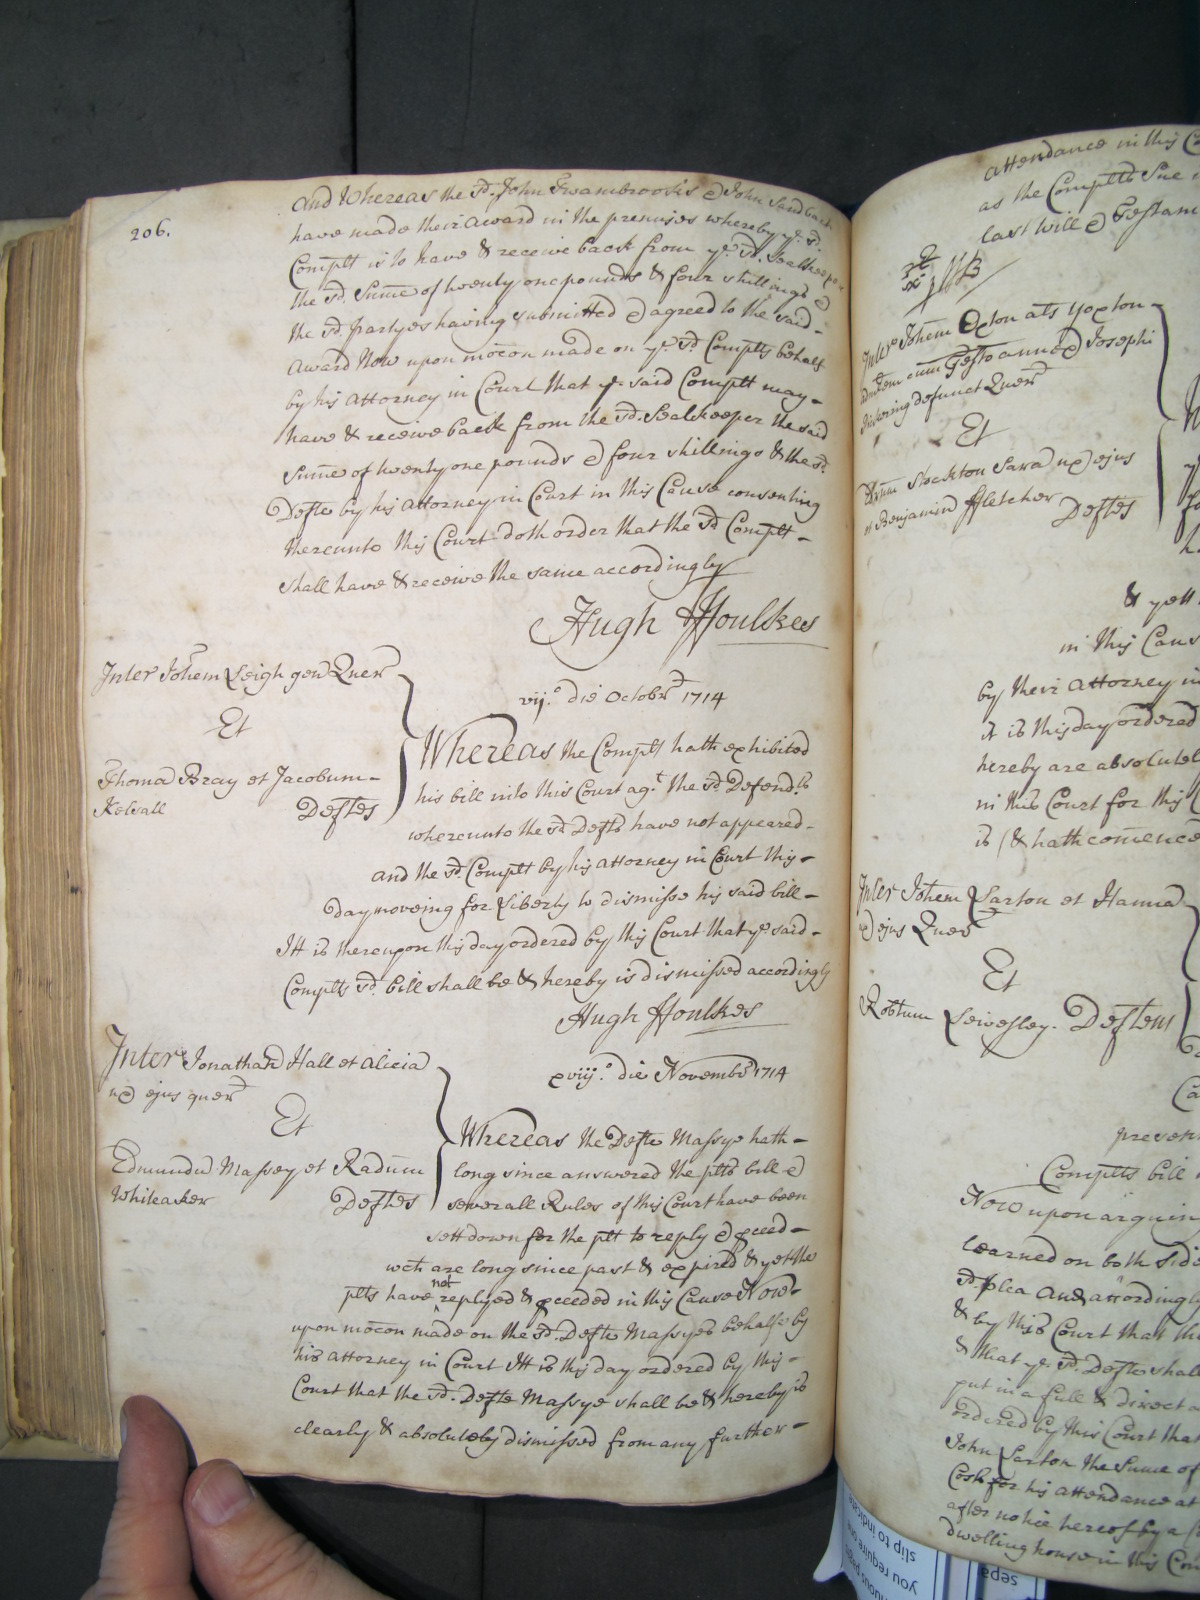 206.
and Whereas the sd. John Swambrooks & John Sandbach
have made their award in the premises whereby ye. sd.
Complt is to have & receive back from ye. sd. Sealkeeper
the sd. Sume of twenty one pounds & four shillings &
the sd. partyes having submitted & agreed to the said
award Now upon mocon made on ye. sd Complts behalf
by his Attorney in Court that ye. said Complt may
have & receive back from the sd. Sealkeeper the said
Sume of twenty one pounds & four shillings & the sd.
Defte by his Attorney in Court in this Cause consenting
thereunto this Court doth order that the sd Complt
shall have & receive the same accordingly
Hugh Ffoulkes
Inter Johem Leigh gen Quer
Et
Thoma Bray et Jacobum
Kelsall Deftes
vij.o die Octobr 1714
Whereas the Complt hath exhibited
his bill into this Court agt. the sd Defend.ts
whereunto the sd Defts have not appeared
and the sd. Complt by his Attorney in Court this
day moveing for Liberty to dismisse his said bill
Itt is thereupon this day ordered by this Court that ye. said
Complts sd. bill shall be & hereby is dismissed accordingly
Hugh Ffoulkes
Inter Jonathan Hall et Alicia
ux ejus quer
Et
Edmundu Massey et Radum
Whiteacker Deftes
xviij.o die Novembr 1714
Whereas the Defte Massye hath
long since answered the plts bill &
severall Rules of this Court have been
sett down for the plt to reply & pceed
wch are long since past & expired & yet the
plts have not replyed & pceeded in this Cause Now
upon mocon made on the sd. Defte Massyes behalfe by
his attorney in Court Itt is this day ordered by this
Court that the sd. Defte Massye shall be & hereby is
clearly & absolutely dismissed from any further
attendance in this
as the Complts Sue
last will & Testam
Inter Johem Oxton als Yoxton
Testo Josephi
defunct Quer
Et
Stockton Sara ux ejus
Benjamin Ffletcher Deftes
& yett
in this Caus
by their Attorney in
it is this day ordered
hereby are absolutel
in this Court for this
is (& hath comence
Inter Johem Sarton et Hanna
ux ejus Quer
Et
Robtum Lewesley. Deftem
presen
Complts bill
Now upon arguin
learned on both side
sd. plea and accordingly
& by this Court that th
& that ye. sd. Defte shall
put in a full & direct a
ordered by this Court that
John Sarton the Sume of
Costs for his attendance at
after notice hereof by a
dwelling house in this Con
you require
slip to indicate
sepa